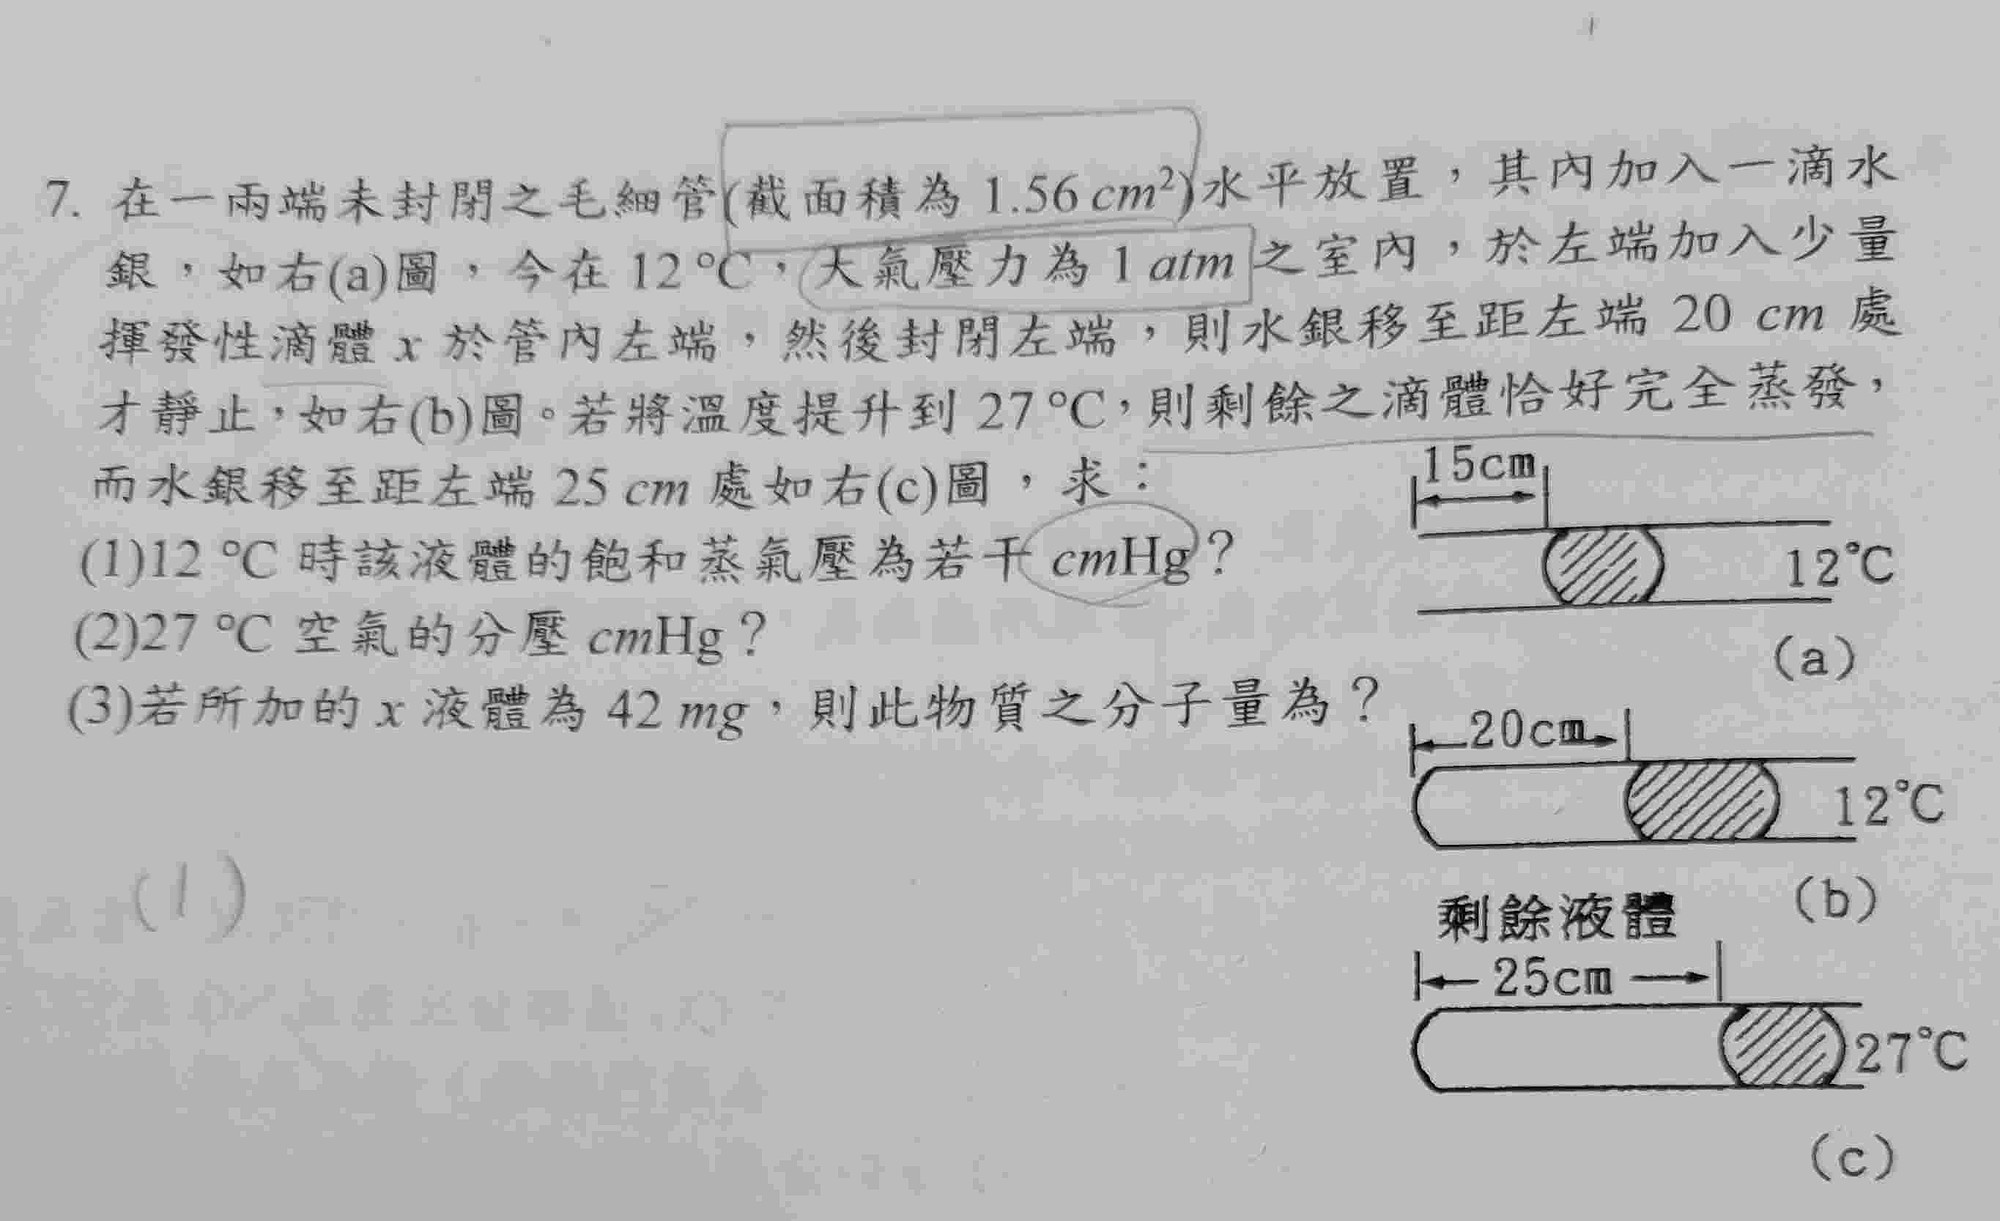 7. 在一兩端未封閉之毛細管(截面積為 1.56 cm²)水平放置，其內加入一滴水
銀，如右(a)圖，今在 12 °C，大氣壓力為 1 atm 之室內，於左端加入少量
揮發性滴體 x 於管內左端，然後封閉左端，則水銀移至距左端 20 cm 處
才靜止，如右(b)圖。若將溫度提升到 27 °C，則剩餘之滴體恰好完全蒸發，
而水銀移至距左端 25 cm 處如右(c)圖，求：
(1)12 °C 時該液體的飽和蒸氣壓為若干 cmHg？
(2)27 °C 空氣的分壓 cmHg？
(3)若所加的 x 液體為 42 mg，則此物質之分子量為？
15cm
12°C
(a)
20cm
12°C
(b)
剩餘液體
25cm
27°C
(c)
(1)